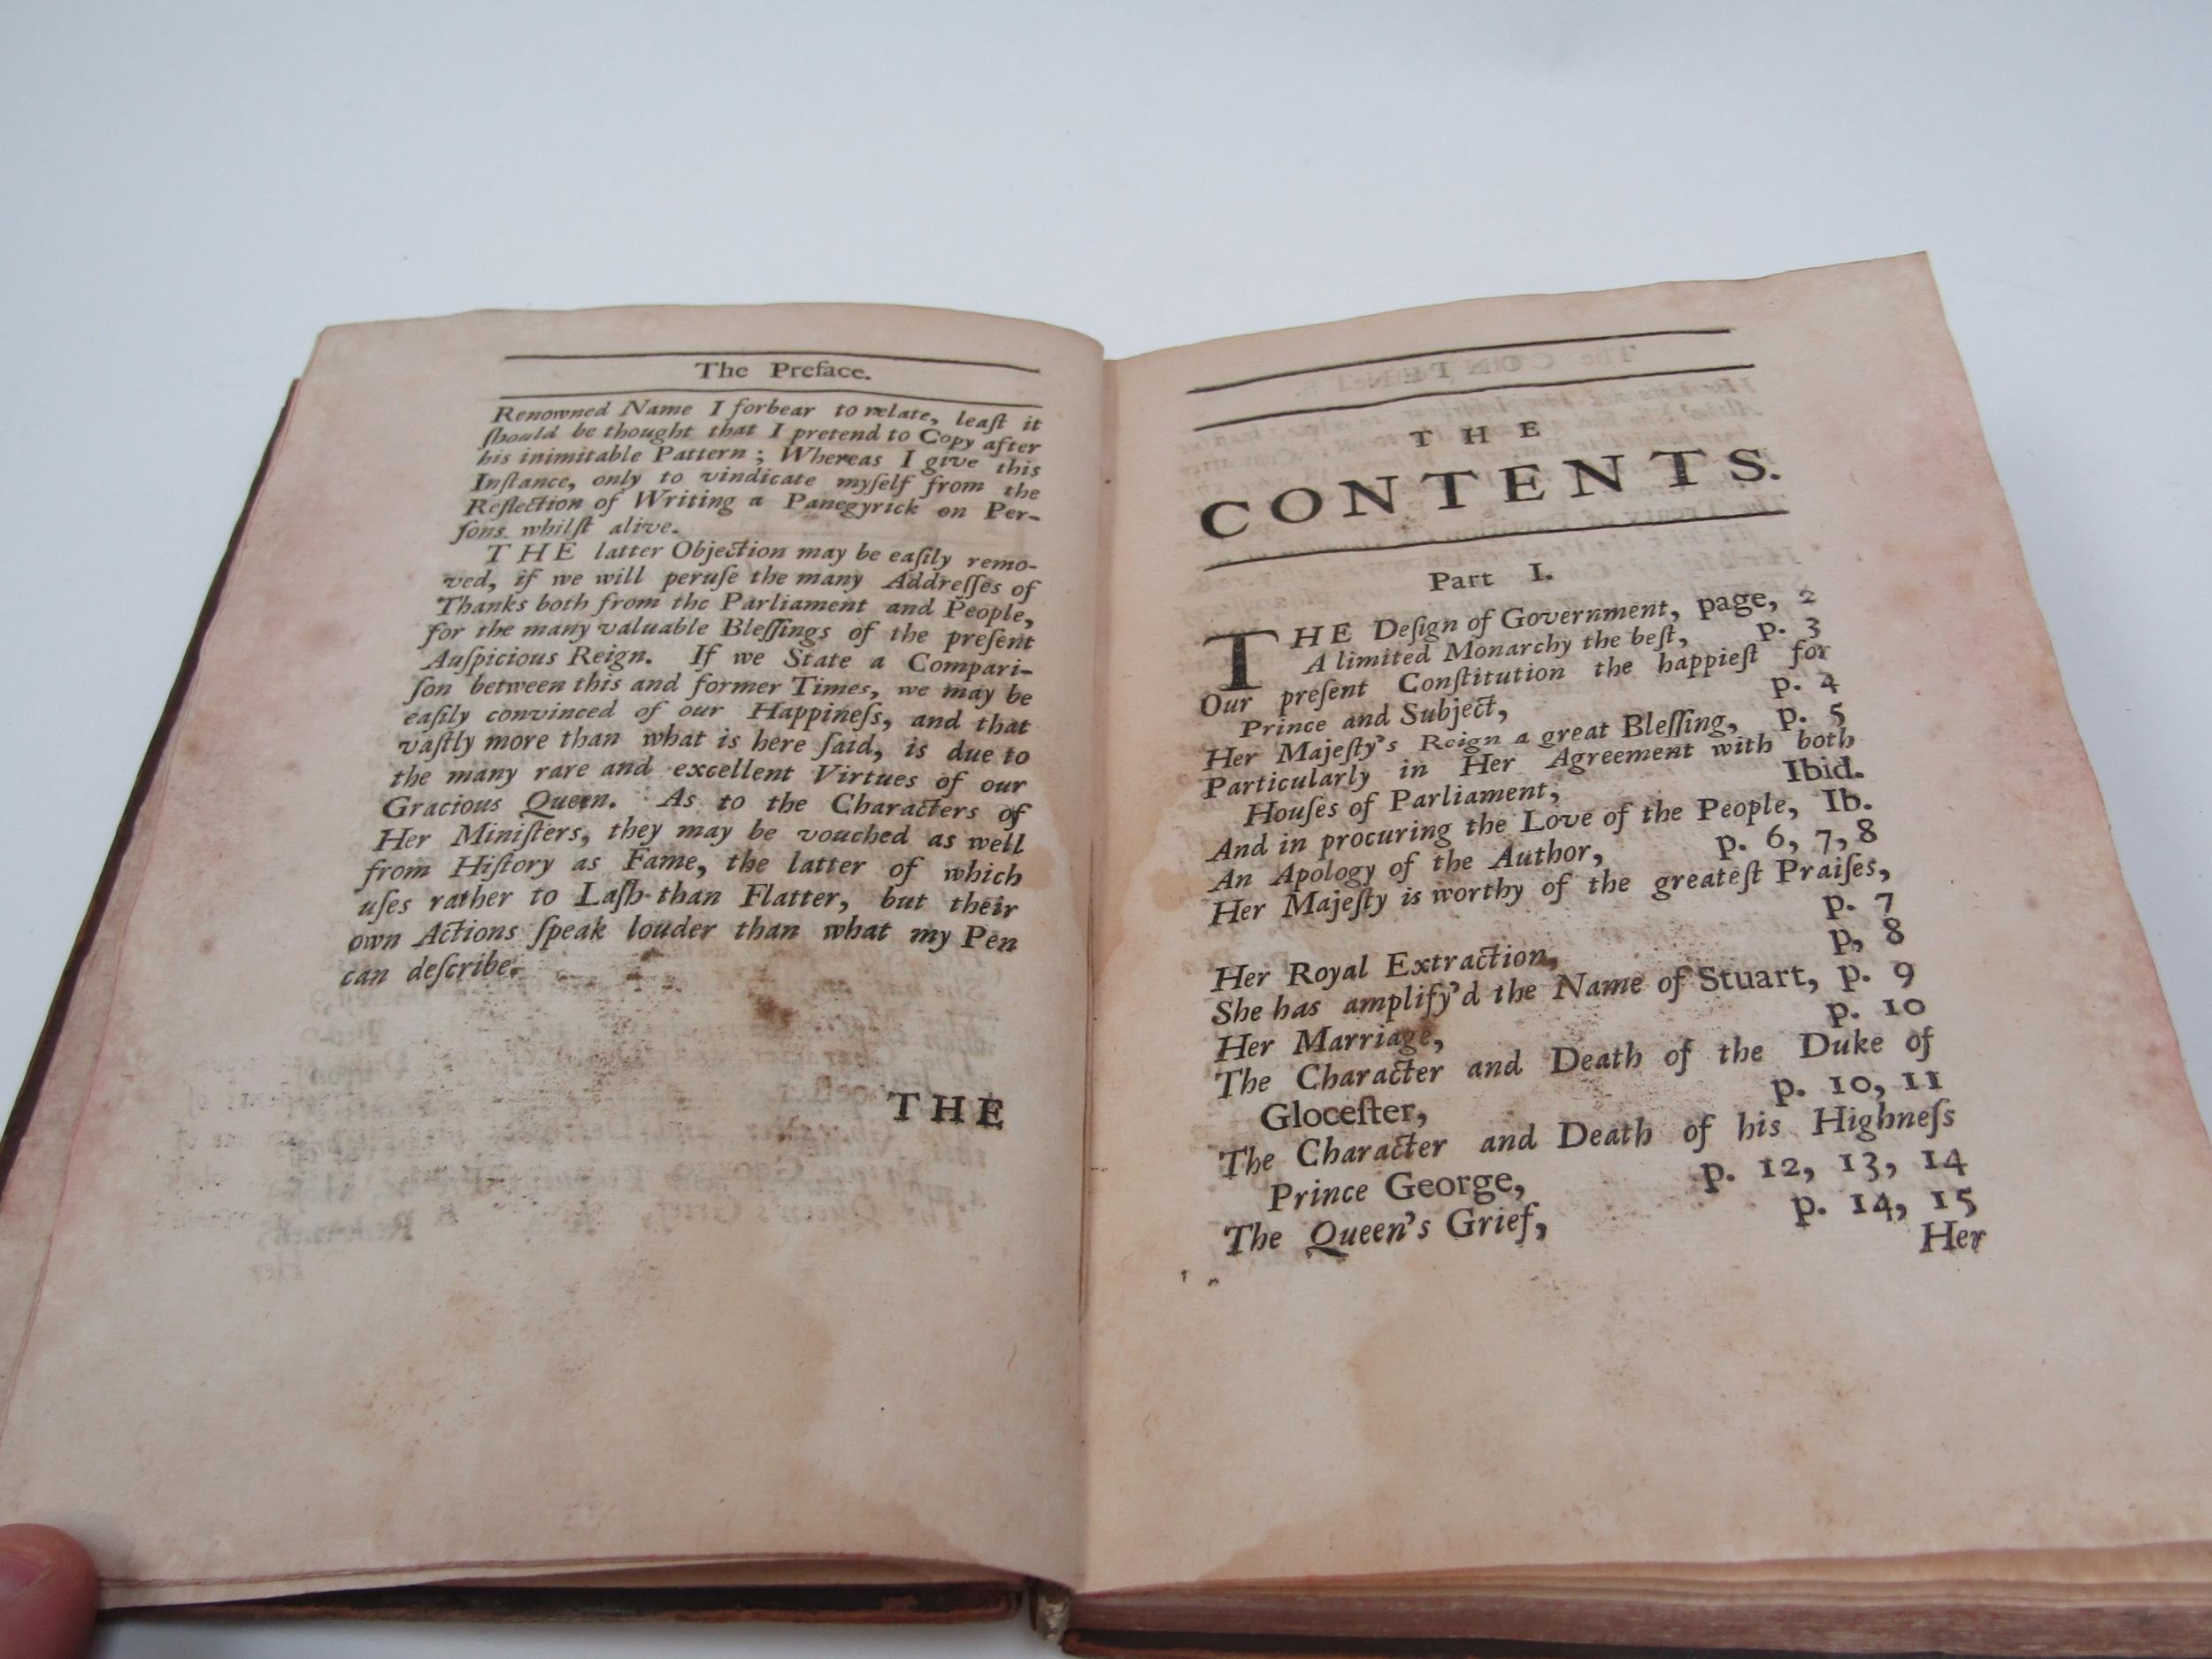 The Preface.
Renowned Name I forbear to relate, leaſt it
ſhould be thought that I pretend to Copy after
his inimitable Pattern ; Whereas I give this
Inſtance, only to vindicate myſelf from the
Reflection of Writing a Panegyrick on Per-
ſons whilſt alive.
THE latter Objection may be eaſily remo-
ved, if we will peruſe the many Addreſſes of
Thanks both from the Parliament and People,
for the many valuable Bleſſings of the preſent
Auſpicious Reign. If we State a Compari-
ſon between this and former Times, we may be
eaſily convinced of our Happineſs, and that
vaſtly more than what is here ſaid, is due to
the many rare and excellent Virtues of our
Gracious Queen. As to the Characters of
Her Miniſters, they may be vouched as well
from Hiſtory as Fame, the latter of which
uſes rather to Laſh than Flatter, but their
own Actions ſpeak louder than what my Pen
can deſcribe.
THE
THE
CONTENTS.
Part I.
THE Deſign of Government, page, 2
A limited Monarchy the beſt, p. 3
Our preſent Conſtitution the happieſt for
Prince and Subject, p. 4
Her Majeſty's Reign a great Bleſſing, p. 5
Particularly in Her Agreement with both
Houſes of Parliament, Ibid.
And in procuring the Love of the People, Ib.
An Apology of the Author, p. 6, 7, 8
Her Majeſty is worthy of the greateſt Praiſes,
p. 7
Her Royal Extraction, p, 8
She has amplify'd the Name of Stuart, p. 9
Her Marriage, p. 10
The Character and Death of the Duke of
Gloceſter, p. 10, 11
The Character and Death of his Highneſs
Prince George, p. 12, 13, 14
The Queen's Grief, p. 14, 15
Her